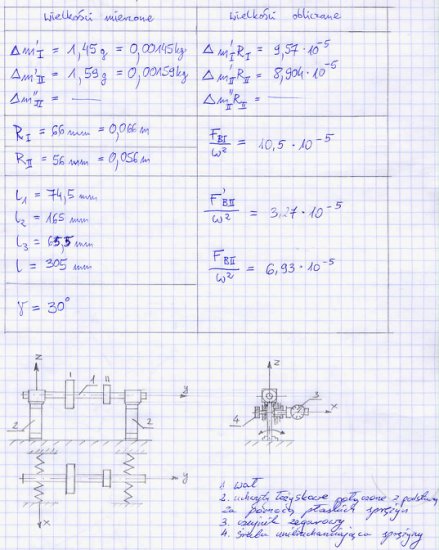 wielkości mierzone
wielkości obliczane
Δm'I = 1,45g = 0,00145kg
Δm'II = 1,59g = 0,00159kg
Δm''II = —
Δm'I RI = 9,57·10⁻⁵
Δm'II RII = 8,904·10⁻⁵
Δm''II RII = —
RI = 66mm = 0,066m
RII = 56mm = 0,056m
FBI/ω² = 10,5·10⁻⁵
l1 = 74,5 mm
l2 = 165 mm
l3 = 65,5 mm
l = 305 mm
F'BII/ω² = 3,27·10⁻⁵
FBII/ω² = 6,93·10⁻⁵
γ = 30°
z
I
1
II
y
2
2
z
3
4
x
y
x
1 wał
2. uchwyty łożyskowe połączone z podstawą
za pomocą płaskich sprężyn
3. czujnik zegarowy
4. śruba unieruchamiająca sprężyny